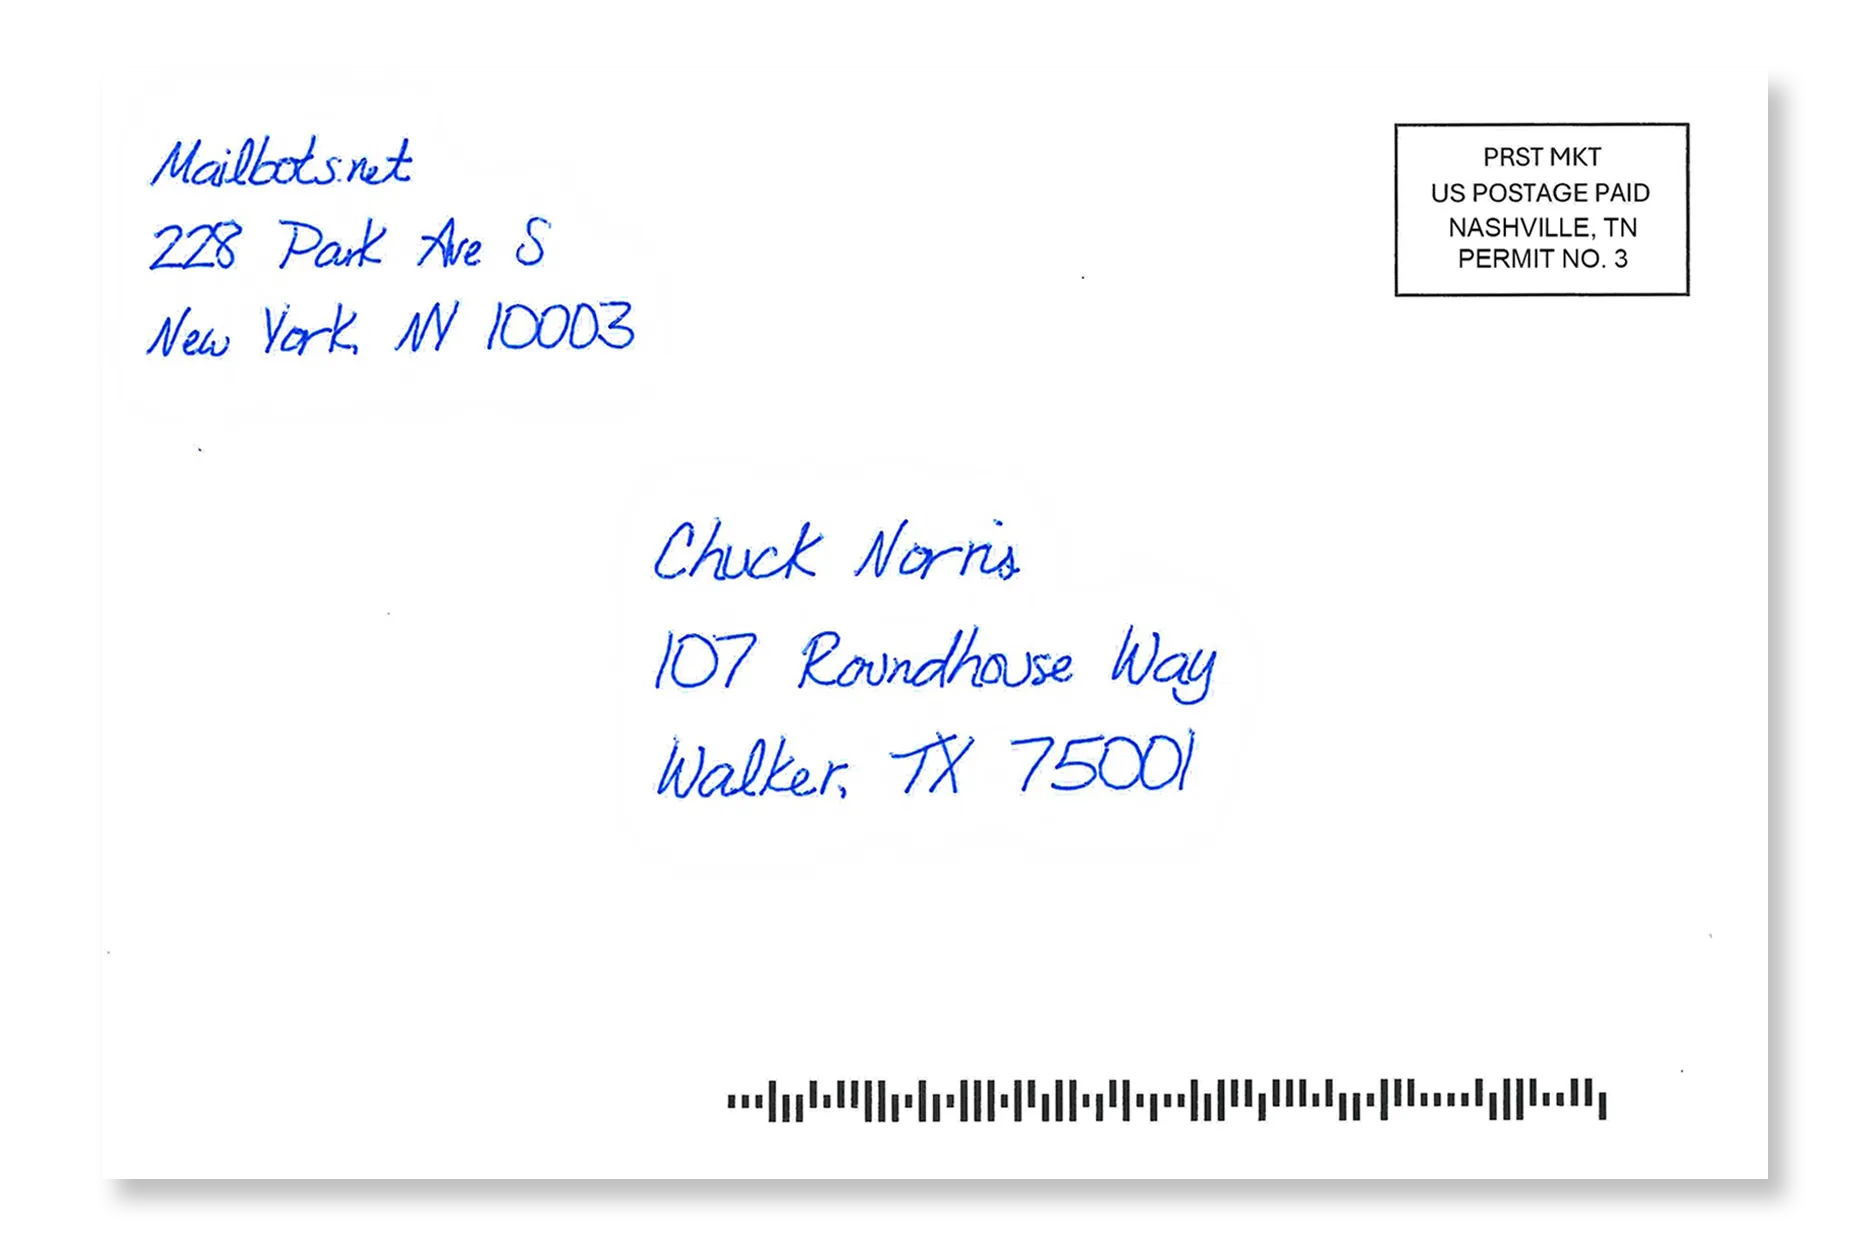 Mailbots.net
228 Park Ave S
New York, NY 10003
PRST MKT
US POSTAGE PAID
NASHVILLE, TN
PERMIT NO. 3
Chuck Norris
107 Roundhouse Way
Walker, TX 75001